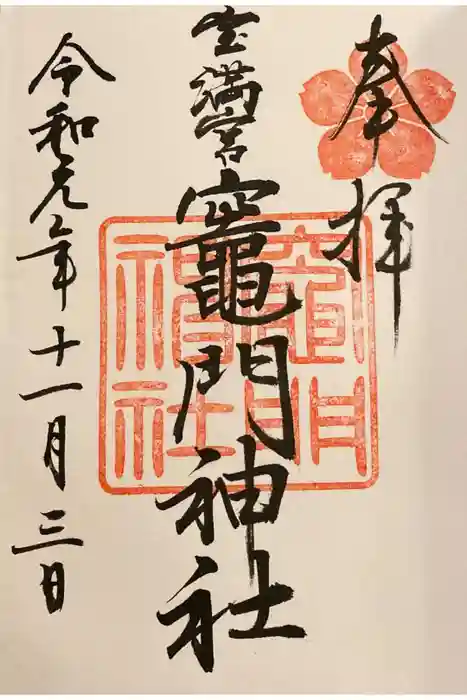 奉拝
宝満宮竈門神社
竈門
神社
令和元年十一月三日